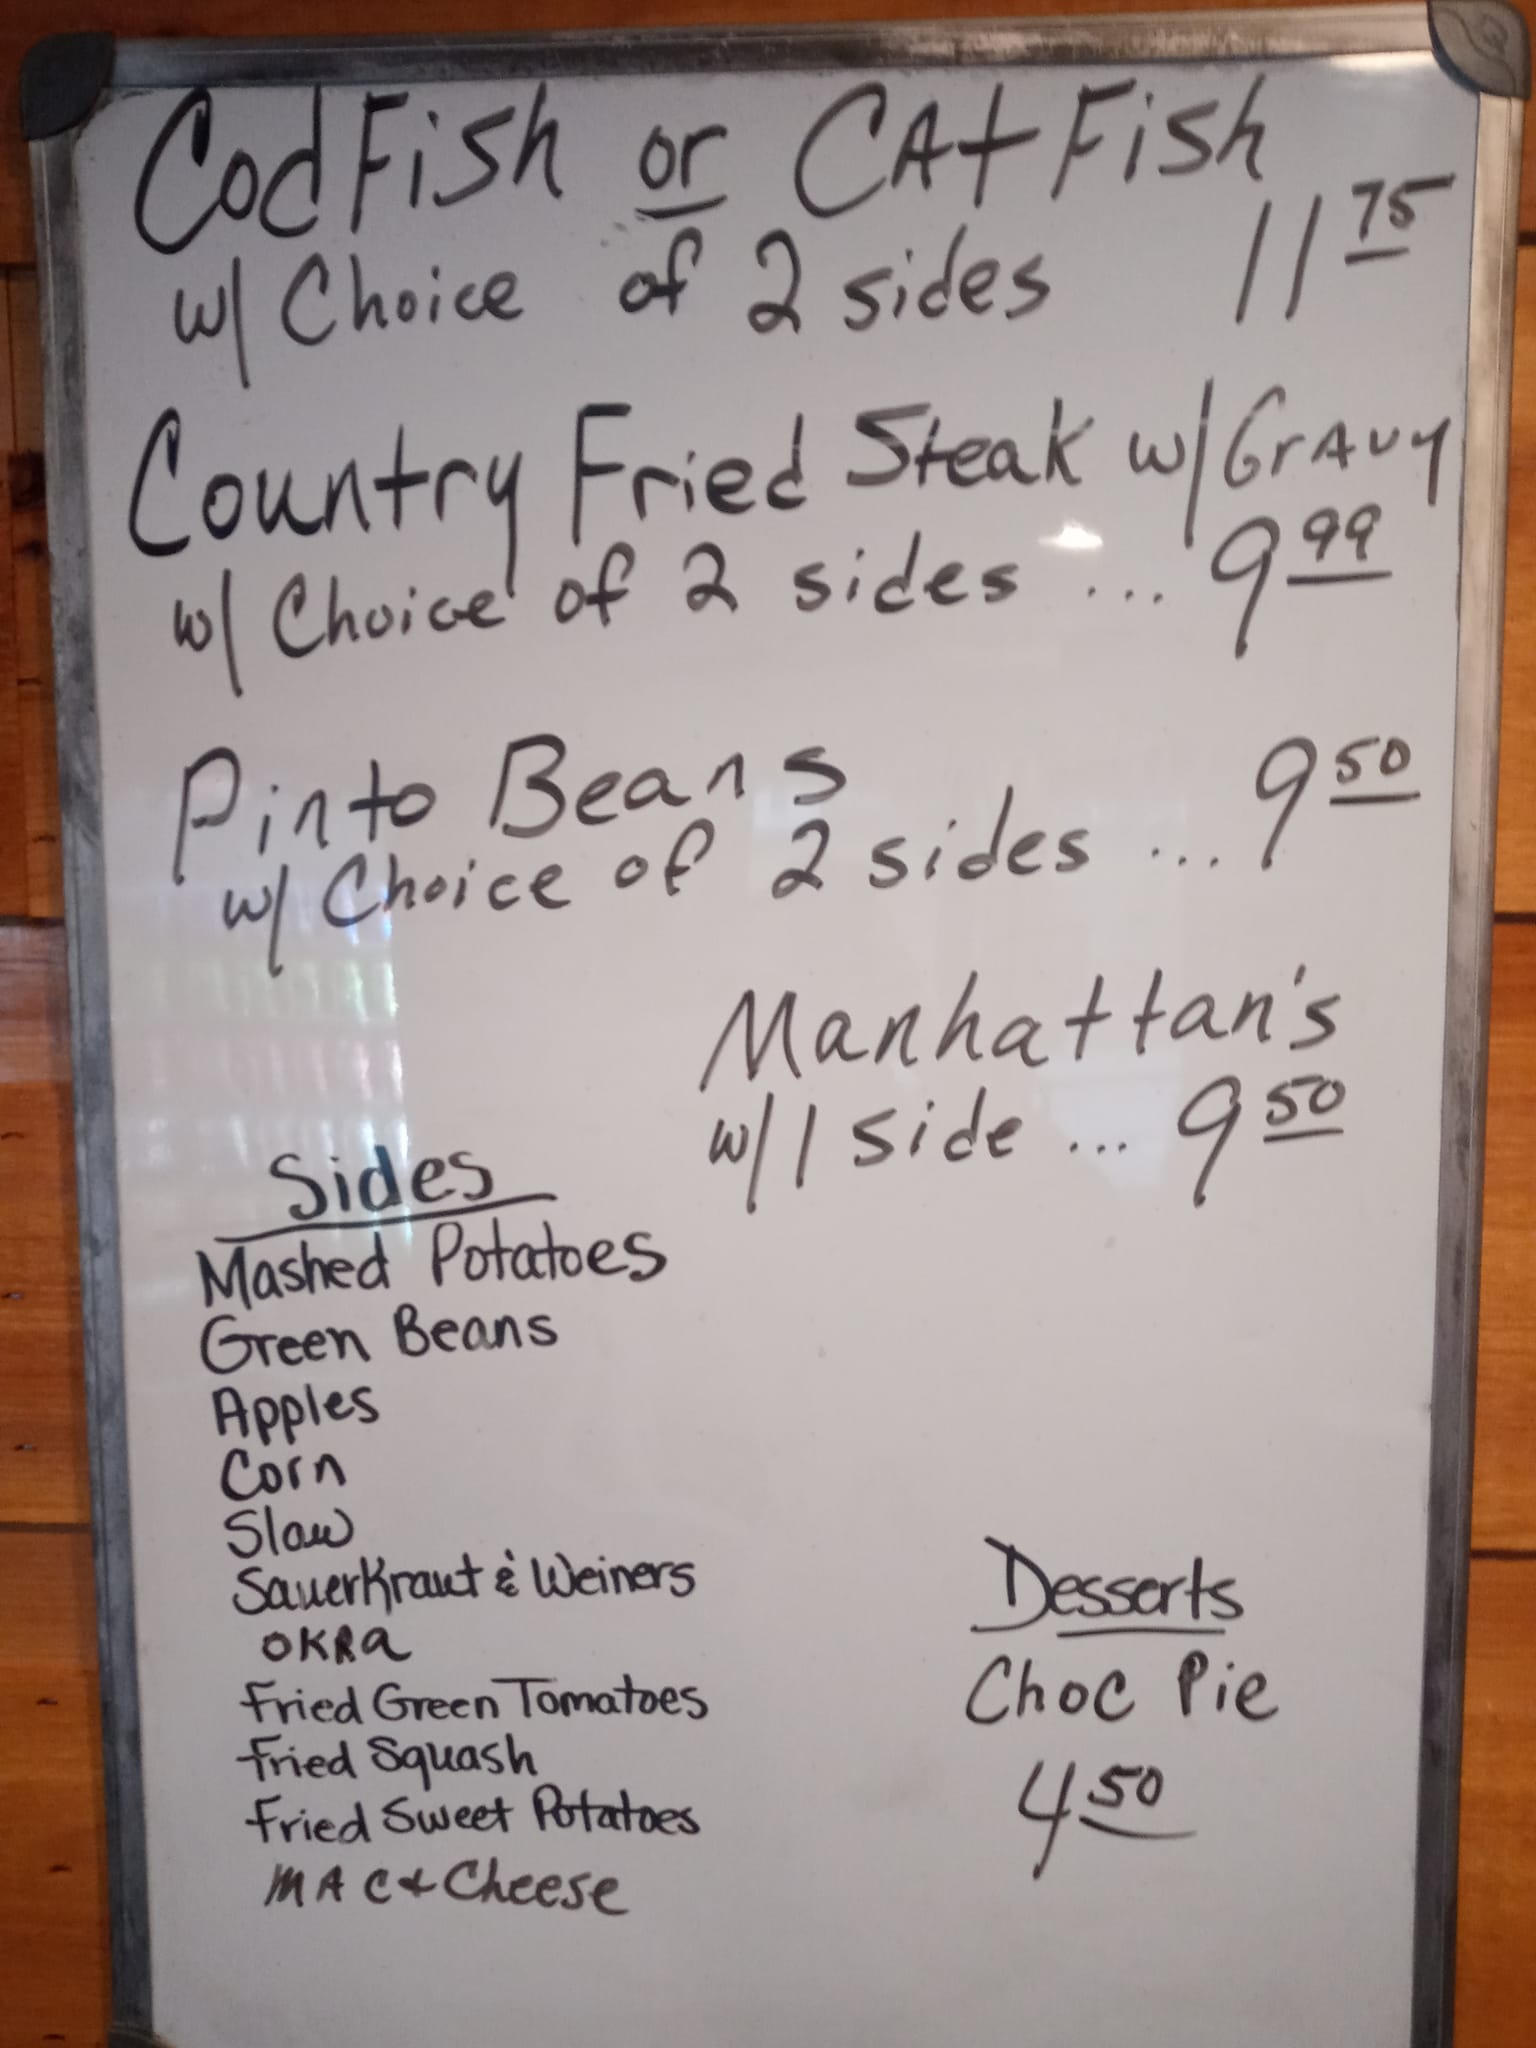 CodFish or CAtFish
w/ Choice of 2 sides 11 75
Country Fried Steak w/ GrAvy
w/ Choice of 2 sides ... 9 99
Pinto Beans
w/ Choice of 2 sides ... 9 50
Manhattan's
w/ 1 side ... 9 50
Sides
Mashed Potatoes
Green Beans
Apples
Corn
Slaw
SauerKraut & Weiners
OKRa
Fried Green Tomatoes
Fried Squash
Fried Sweet Potatoes
MAC & Cheese
Desserts
Choc Pie
4 50